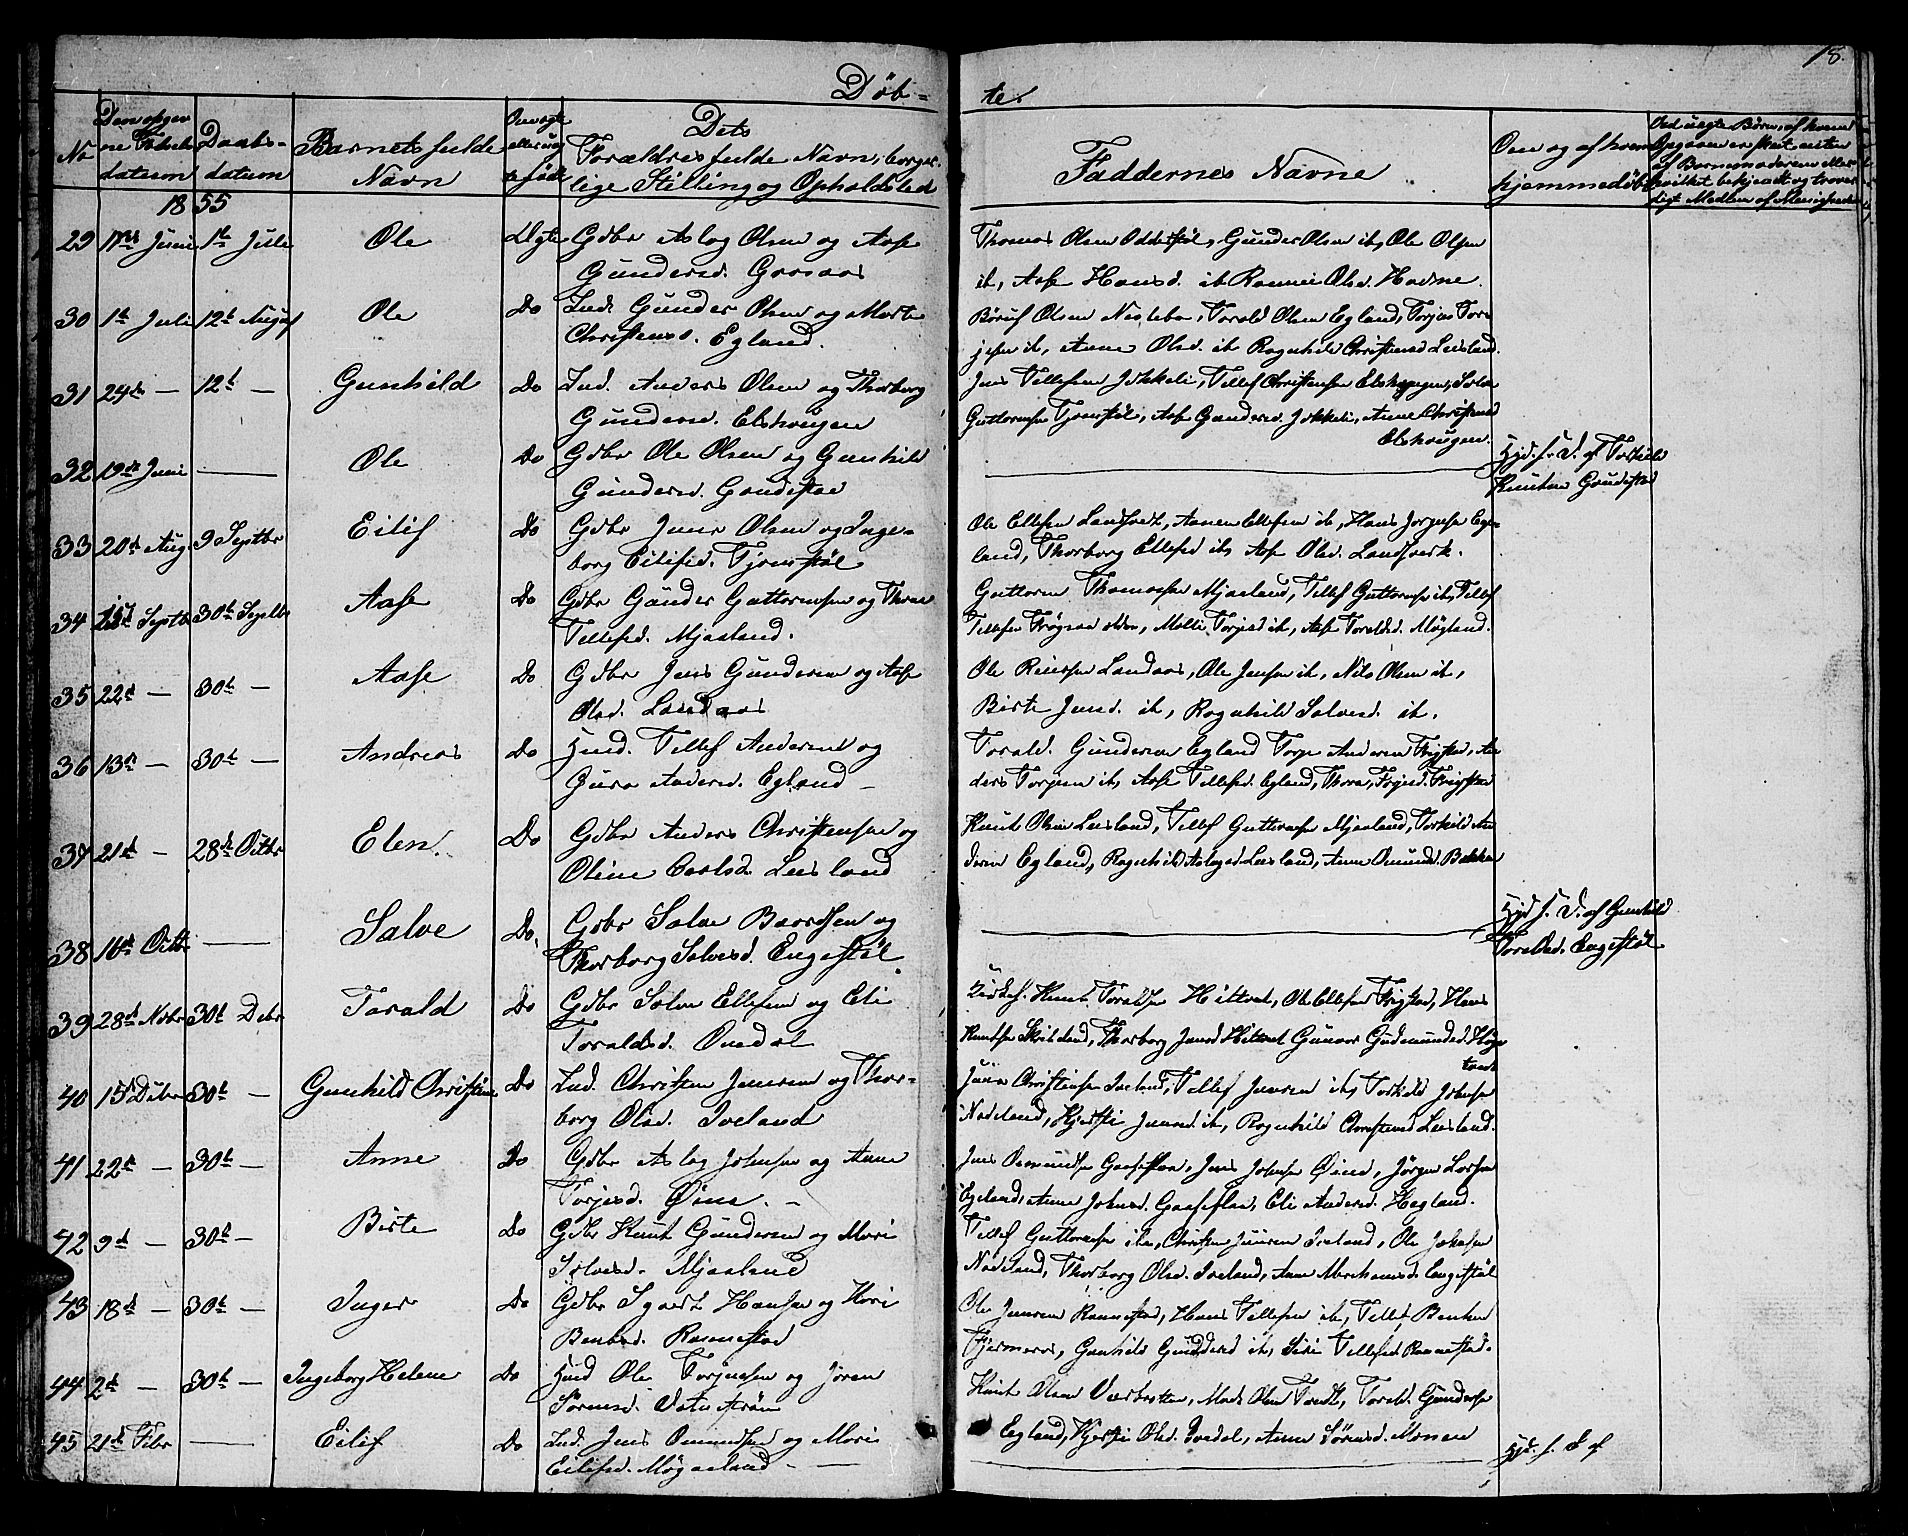 18.
Døb-
te.
No
Den opgiv
ne Fødsels
datum
Daabs-
datum
Barnets fulde
Navn
Om ægte
eller uæg
te født
Dets
Forældres fulde Navn, borger
lige Stilling og Opholdsted
Faddernes Navne
Om og af hvem
hjemmedøbt
1855
29 17de Juni 1te Juli Ole Ægte Gdbr Aslag Olsen og Aase
Gundersd. Gaasaas
Thomas Olsen Oddestøl, Gunder Olsen ib, Ole Olsen
ib, Aase Hansd. ib Rannei Olsd. Hodne.
30 1te Juli 12te August Ole Do Ind. Gunder Olsen og Marte
Christensd. Egland.
Børuf Olsen Nestebø, Torald Olsen Egland, Torjus Tor-
jesen ib, Anne Olsd. ib Ragnhild Christensd Leisland.
31 24de — 12te — Gunhild Do Ind. Anders Olsen og Thorborg
Gundersd. Elshougen
Jens Tellefsen Jokkeli, Tellef Christensen Elshougen, Salve
Guttormsen Tjomstøl, Aase Gundersd. Jokkeli, Anne Christensd
Elshougen.
32 19de Juni — Ole Do Gdbr Ole Olsen og Gunhild
Gundersd. Goudestad
Hjd. f. D. af Torkild
Knutsen Goudestad
33 20de Aug. 9 Septbr Eilif Do Gdbr Jens Olsen og Inge-
borg Eilifsd. Tjomstøl
Ole Ellefsen Landsverk, Aanen Ellefsen ib, Hans Jørgensen Ege-
land, Thorborg Ellefsd ib, Aase Olsd. Landsverk.
34 Septbr 30te Septbr Aase Do Gdbr Gunder Guttormsen og Thore
Tellefsd. Mjaaland.
Guttorm Thomassen Mjaaland, Tellef Guttormsen ib, Tellef
Tellefsen Frøysaa, Malli Torjusd ib, Aase Toraldsd. Møgland.
35 22de — 30te — Aase Do Gdbr Jens Gundersen og Aase
Olsd. Landaas
Ole Reiersen Landaas, Ole Jensen ib, Nils Olsen ib,
Birte Jensd. ib, Ragnhild Salvesd. ib.
36 13de — 30te — Andreas Do Hmd. Tellef Andersen og
Guro Andersd. Egland —
Torald. Gundersen Egland Torje Andersen Frigstad, An-
ders Torjesen ib, Aase Tellefsd. Egland, Thora Torjesd. Frigstad
37 21de — 28de Octbr Elen. Do Gdbr Anders Christensen og
Oline Carlsd. Leisland
Knut Olsen Leisland, Tellef Guttormsen Mjaaland, Torkild An-
dersen Egland, Ragnhild Aslagsd Leisland, Anne Omundsd. Bakken
38 16de Octbr — Salve Do, Gdbr Salve Baardsen og
Thorborg Salvesd. Engestøl.
Hjd f. D. af Gunhild
Toraldsd. Engestøl
39 28de Novbr 30te Debr Torald Do Gdbr Salve Ellefsen og Eli
Toraldsd. Omdal
Kirkes. Knut Toraldsen Heltvet, Ole Ellefsen Frigstad, Hans
Knutsen Skeisland, Thorborg Jensd Heltvet Gunvor Gudmundsd. Høge
tvedt
40 15de Debr 30te — Gunhild Christine Do Ind. Christen Jensen og Thor-
borg Olsd. Iveland
Jens Christensen Iveland, Tellef Jensen ib, Torkild Johnsen
Nodeland, Kjersti Jensd. ib, Ragnhild Christensd Leisland.
41 22de — 30te — Anne Do Gdbr Aslag Johnsen og Anne
Torjesd. Øine. —
Jens Osmundsen Gaaseflaa, Jens Johnsen Øine, Jørgen Larsen
Egeland, Anne Johnsd. Gaaseflaa, Eli Andersd. Hegland.
42 9de — 30te — Birte Do Gdbr Knut Gundersen og Mari
Salvesd. Mjaaland
Tellef Guttormsen ib, Christen Jensen Iveland, Ole Johnsen
Nodeland, Thorborg Olsd. Iveland, Anne Abrahamsd. Engestøl
43 18de — 30te — Inger Do Gdbr Sywert Hansen og Kari
Bentsd. Rannestad
Ole Jensen Rannestad, Hans Tellefsen ib, Tellef Bentsen
Fjermeros, Gunhild Gundersd ib, Siri Tellefsd Rannestad.
44 2de — 30te — Ingeborg Helene Do Hmd Ole Torjusen og Joren
Sørensd. Vatnstrøm
Knut Olsen Værbrotten, Mads Olsen Tveit, Torald Gundersen
Egland, Kjersti Olsd. Ivedal, Anne Sørensd. Monen
45 21de Febr — Eilif Do Ind. Jens Omundsen og Mari
Eilifsd. Møgaaland —
Hjd. f. D. af